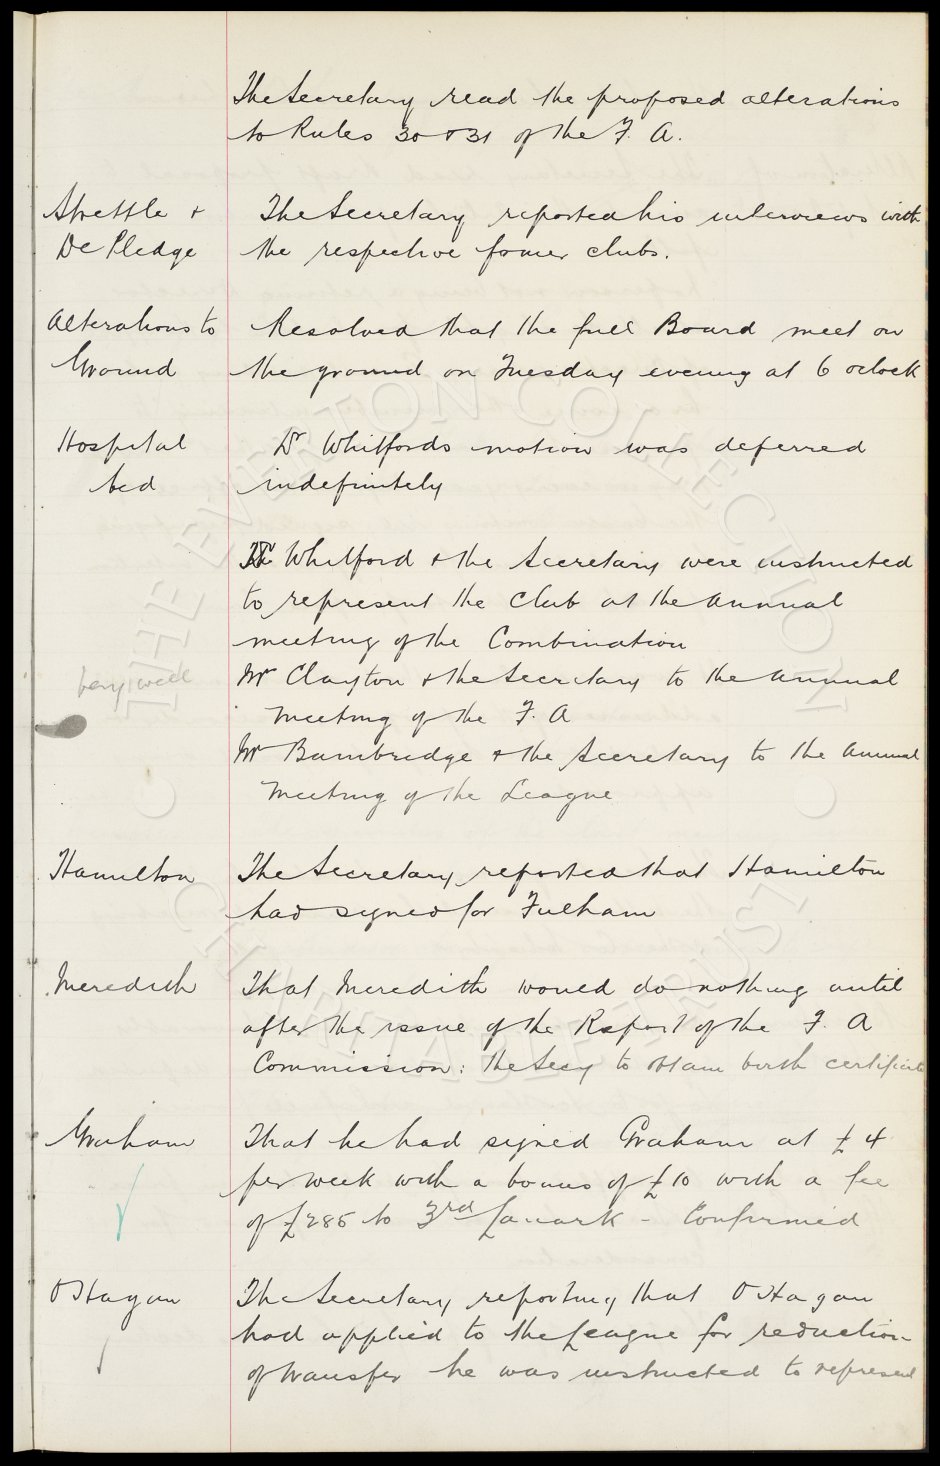 The Secretary read the proposed alterations
to Rules 30 & 31 of the F. A.
Spettle &
De Pledge
The Secretary reported his interviews with
the respective former clubs.
Alterations to
Ground
Resolved that the full Board meet on
the ground on Tuesday evening at 6 oclock
Hospital
bed
Dr Whitfords motion was deferred
indefinitely
Dr Whitford & the Secretary were instructed
to represent the Club at the Annual
meeting of the Combination
Mr Clayton & the Secretary to the Annual
Meeting of the F. A
Mr Bainbridge & the Secretary to the Annual
Meeting of the League
Hamilton
The Secretary reported that Hamilton
had signed for Fulham
Meredith
That Meredith would do nothing until
after the issue of the Report of the F. A
Commission: the Secy to obtain birth certificate
Graham
That he had signed Graham at £4
per week with a bonus of £10 with a fee
of £285 to 3rd Lanark - Confirmed
O'Hagan
The Secretary reporting that O'Hagan
had applied to the League for reduction
of transfer he was instructed to represent
THE EVERTON COLLECTION
CHARITABLE TRUST